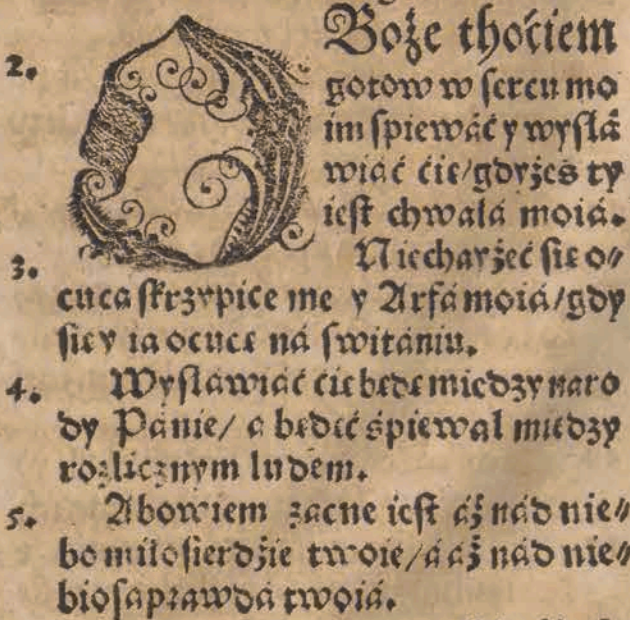 O Boże thoćiem
2. gotow w sercu mo
im śpiewáć y wysłá
wiáć ćię/gdyżeś ty
iest chwałá moiá.
3. Niechayżeć się o⸗
cucą skrzypice me y Arfá moiá/gdy
się y ia ocucę ná świtániu.
4. Wysławiáć cię będę między naro
dy Pánie/ a będęć śpiewał między
rozlicznym ludem.
5. Abowiem zacne iest áż nád nie⸗
bo miłosierdźie twoie/á áż nád nie⸗
biosa prawdá twoiá.